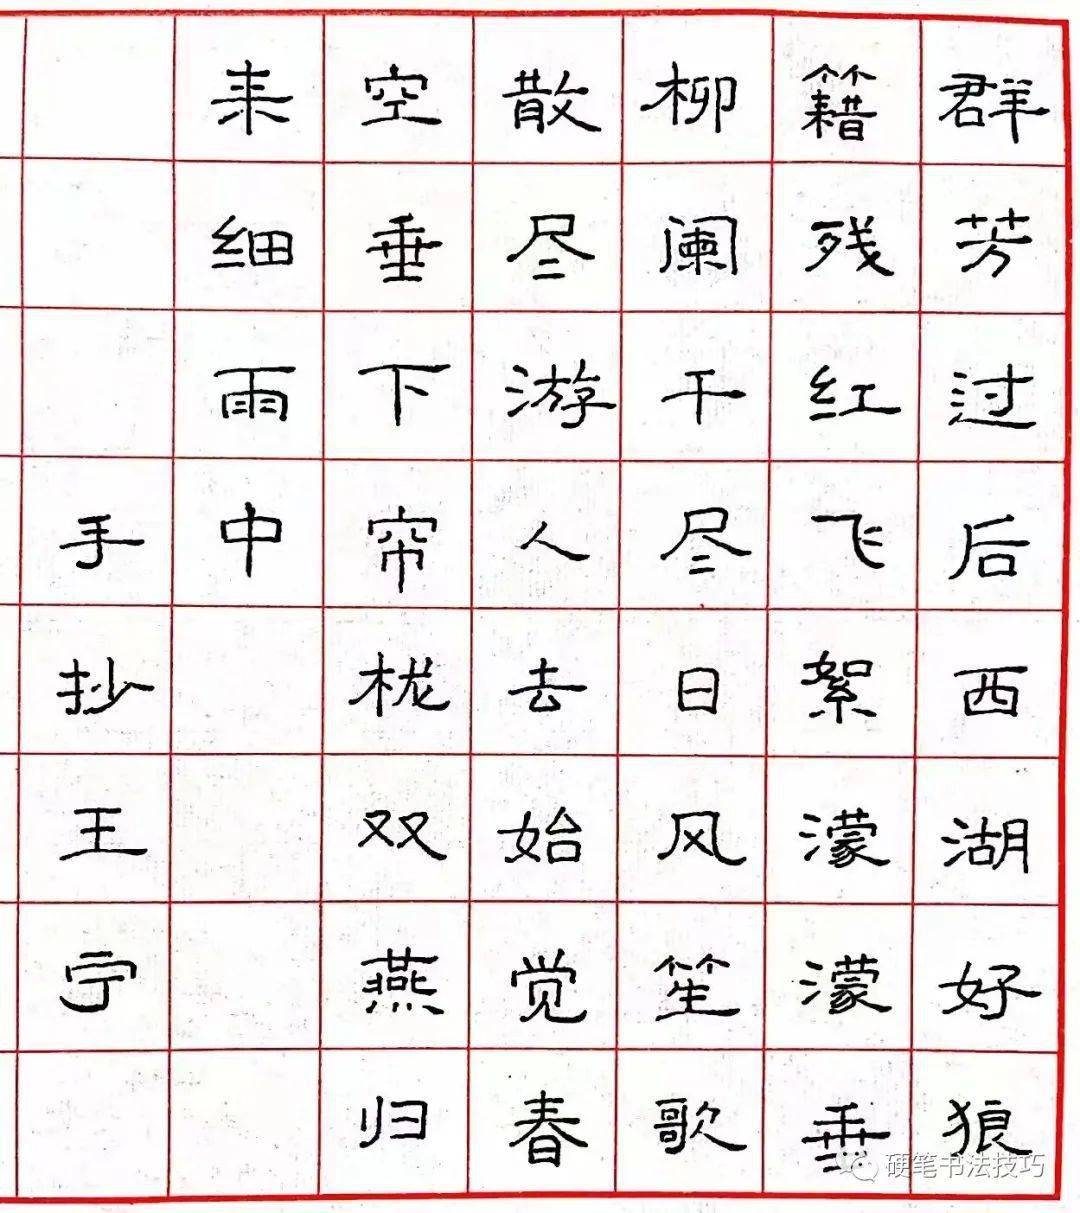 群芳过后西湖好狼
籍残红飞絮濛濛垂
柳阑干尽日风笙歌
散尽游人去始觉春
空垂下帘栊双燕归
来细雨中
手抄王宁
硬笔书法技巧